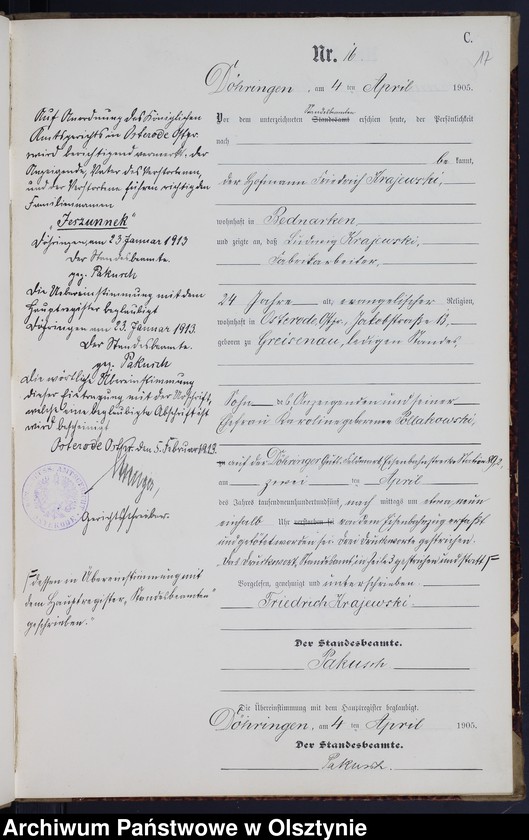 C.
17
Nr. 16
Döhringen, am 4 ten April 1905.
Standesbeamten
Vor dem unterzeichneten Standesamt erschien heute, der Persönlichkeit
nach
be kannt,
der Hofmann Friedrich Krajewski,
wohnhaft in Bednarken
und zeigte an, daß Ludwig Krajewski,
Fabrikarbeiter,
24 Jahre alt, evangelischer Religion,
wohnhaft in Osterode Ostpr., Jakobstraße 13,
geboren zu Greisenau, ledigen Standes
Sohn des Anzeigenden und seiner
Ehefrau Karoline geborene
auf der Döhringer Feldmark Eisenbahnstrecke Station
am zwei ten April
des Jahres tausendneunhundertfünf, nach mittags um etwa neun
einhalb Uhr verstorben sei von dem Eisenbahnzug erfaßt
und getötet worden sei. Drei Druckworte gestrichen.
Das Druckwort „Standesamt“ in Zeile 3 gestrichen und statt
Vorgelesen, genehmigt und unterschrieben
Friedrich Krajewski
Der Standesbeamte.
Pakusch
Die Übereinstimmung mit dem Hauptregister beglaubigt.
Döhringen, am 4 ten April 1905.
Der Standesbeamte.
Pakusch.
Auf Anordnung des Königlichen
Amtsgerichts in Osterode Ostpr.
wird berichtigend vermerkt, der
Anzeigende, Vater des Verstorbenen,
und der Verstorbene führen richtig den
Familiennamen
„Jeszunnek“
Döhringen am 23 Januar 1913
Der Standesbeamte.
gez. Pakusch
Die Uebereinstimmung mit dem
Hauptregister beglaubigt
Döhringen am 23. Januar 1913.
Der Standesbeamte.
gez. Pakusch
Die wörtliche Übereinstimmung
dieser Eintragung mit der Abschrift,
welche eine beglaubigte Abschrift ist
wird bescheinigt
Osterode Ostpr. den 5. Februar 1913.
Gerichtsschreiber.
dessen in Übereinstimmung mit
dem Hauptregister „Standesbeamten“
geschrieben.“
Archiwum Państwowe w Olsztynie